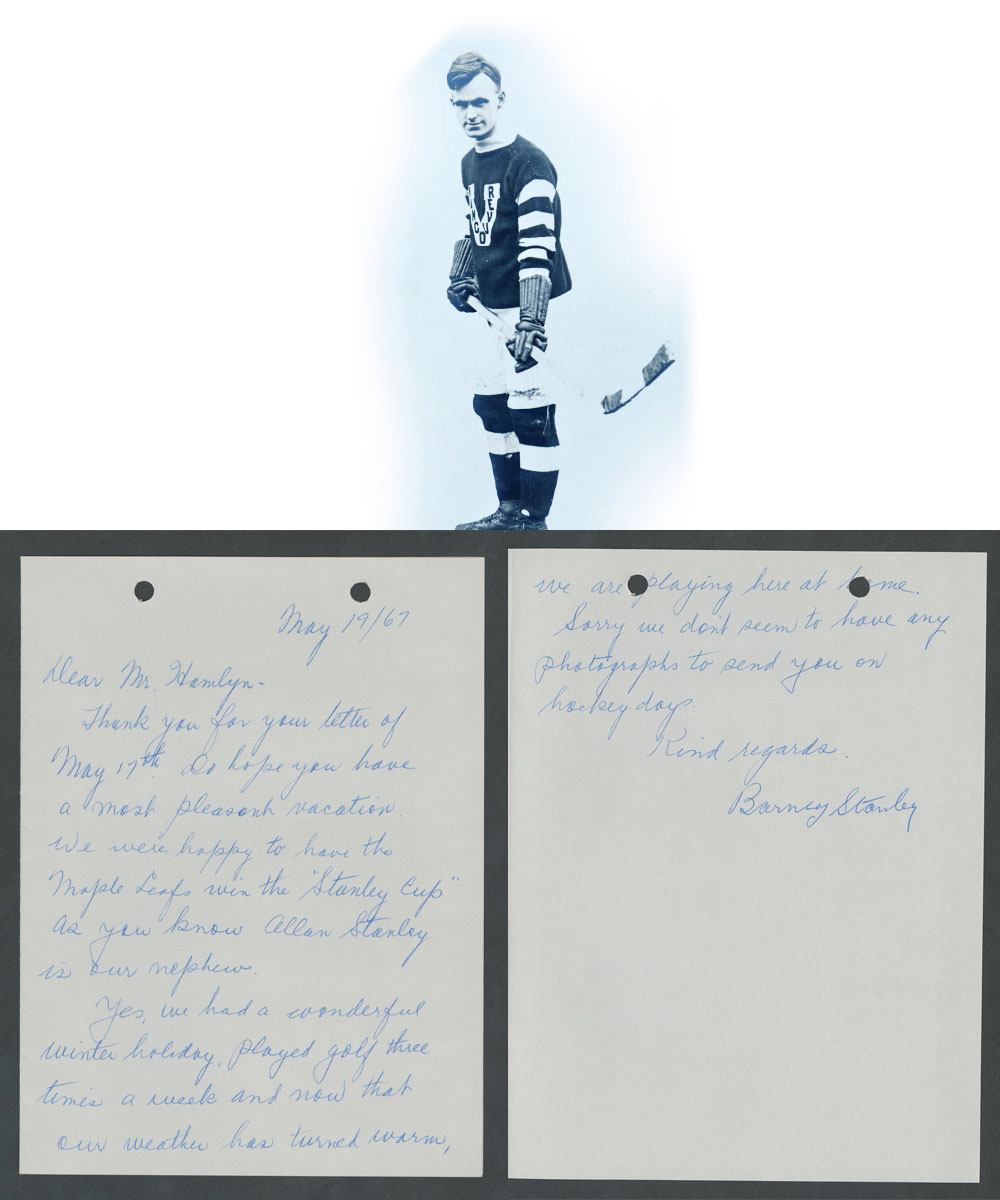 VANCOUVER
May 19/67
Dear Mr. Hamlyn-
Thank you for your letter of
May 17th. Do hope you have
a most pleasant vacation.
We were happy to have the
Maple Leafs win the "Stanley Cup"
As you know Allan Stanley
is our nephew.
Yes, we had a wonderful
winter holiday, played golf three
times a week and now that
our weather has turned warm,
we are playing here at home.
Sorry we don't seem to have any
photographs to send you on
hockey days.
Kind regards.
Barney Stanley